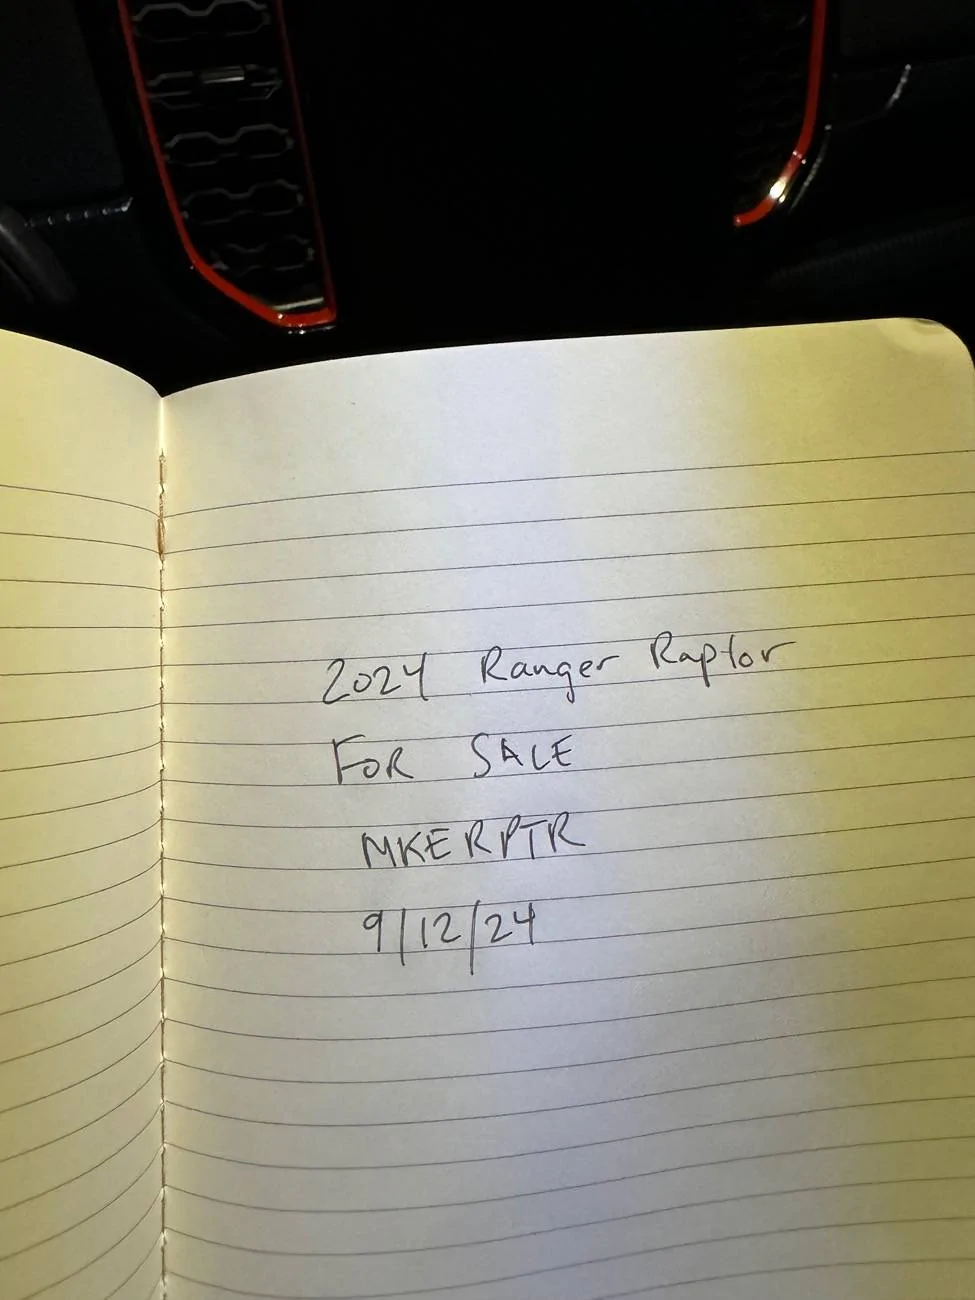 2024 Ranger Raptor
FOR SALE
MKERPTR
9/12/24